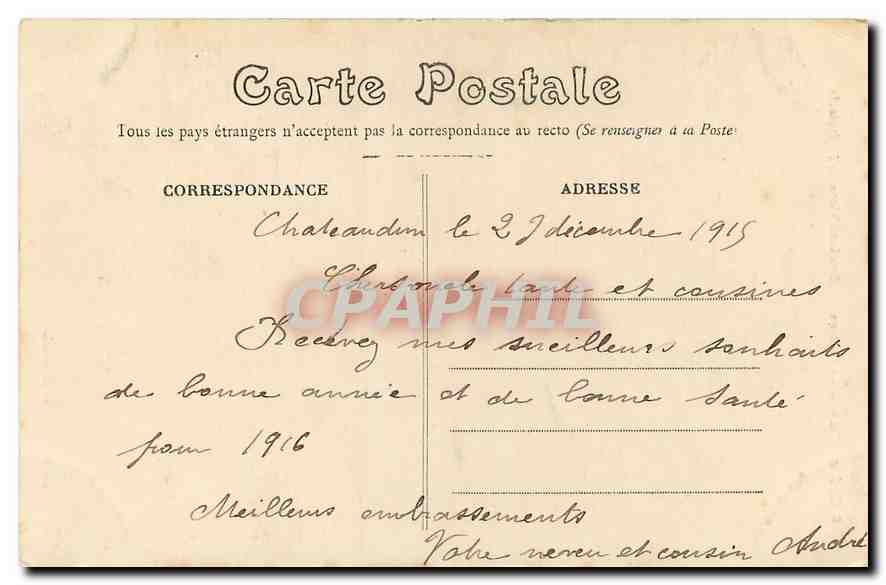 Carte Postale
Tous les pays étrangers n'acceptent pas la correspondance au recto (Se renseigner à la Poste)
CORRESPONDANCE
ADRESSE
Chateaudun le 29 décembre 1915
Chers oncle tante et cousines
CPAPHIL
Recevez mes meilleurs souhaits
de bonne année et de bonne santé
pour 1916
Meilleurs embrassements
Votre neveu et cousin André